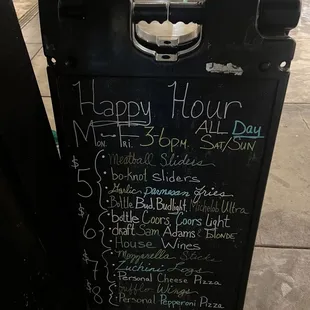 Happy Hour
Mon-Fri. 3-6pm. ALL Day Sat/Sun
$5 Meatball Sliders
bo-knot sliders
Garlic Parmesan fries
Bottle Bud, Budlight, Michelob Ultra
$6 bottle Coors, Coors light
draft Sam Adams & Blonde
House Wines
$7 Mozzarella Sticks
Zuchini
Personal Cheese Pizza
$8 Buffalo Wings
Personal Pepperoni Pizza